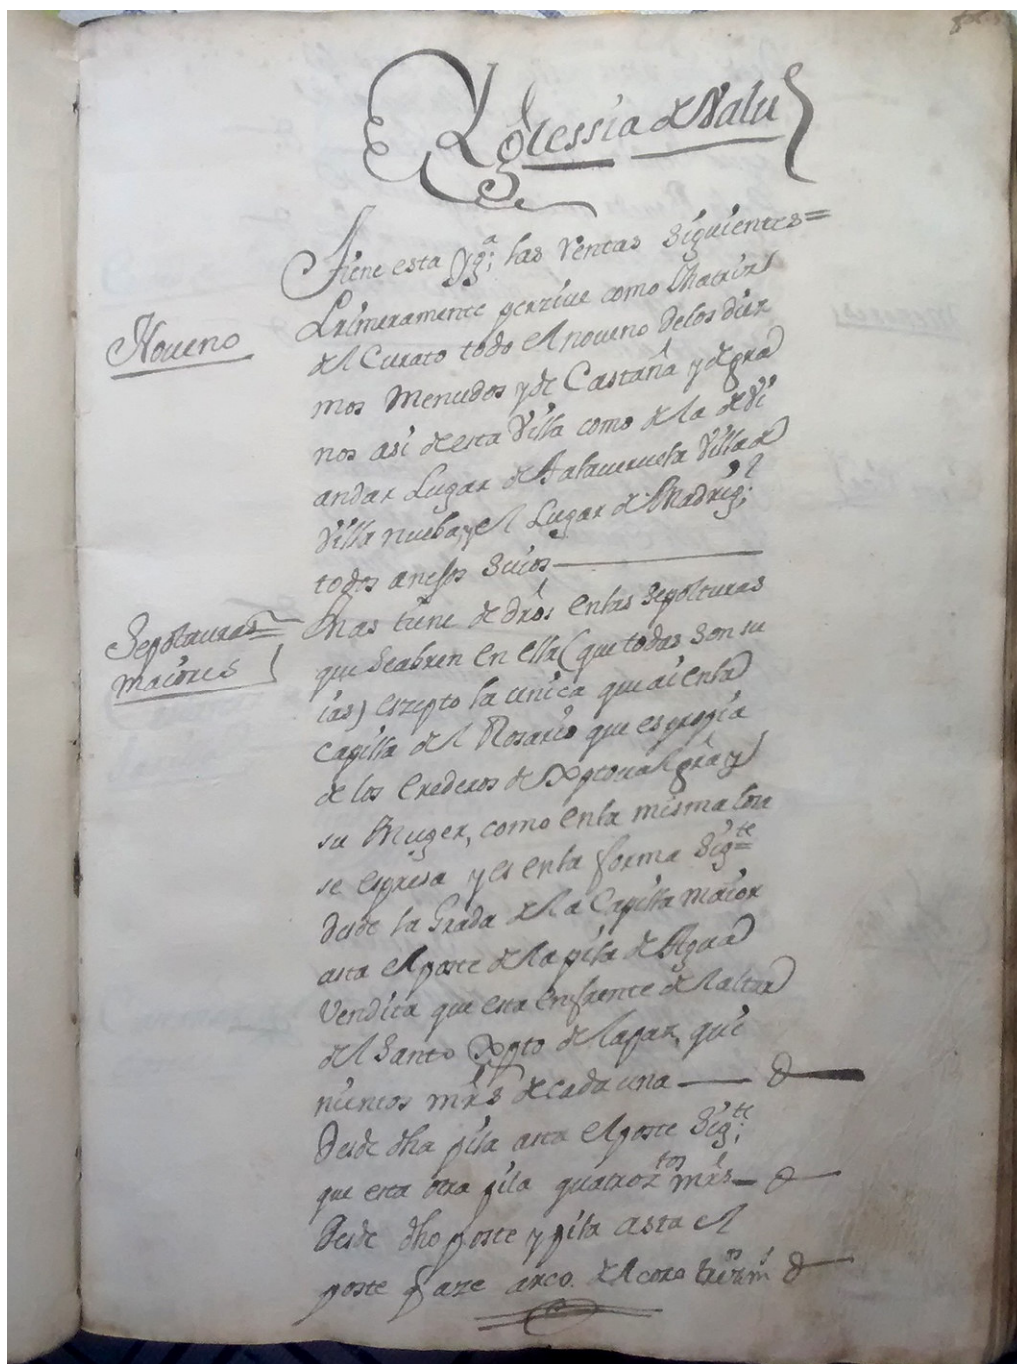 Yglessia de Valu
Tiene esta Yg.ª las Rentas Siguientes=
Noveno
Primeramente perzive como Matriz
del Curato todo el noveno delos diez
mos Menudos y de Castaña y de gra
nos asi de esta Villa como de la de Vi
andar Lugar de Talaveruela Villa de
Villa nueba, y el Lugar de Madrig.l
todos anejos Suios
Sepolturas=
maiores
Mas tiene de drōs en las Sepolturas
que Se abren en ella (que todas Son su
ias) eszepto la unica que ai en la
Capilla del Rosario que es propia
de los Erederos de Xptoval y
su Muger, como en la misma
se espresa y es en la forma Sig.te=
desde la Grada de la Capilla maior
asta el poste de la pila de Agua
Vendita que esta enfrente del altar
del Santo Xpto de la paz, qui
nientos mrs de cada una
Desde dha pila asta el poste Sig.te
que esta otra pila quatroz.tos mrs
Desde dho poste y pila asta el
poste q aze arco del coro trez.os m